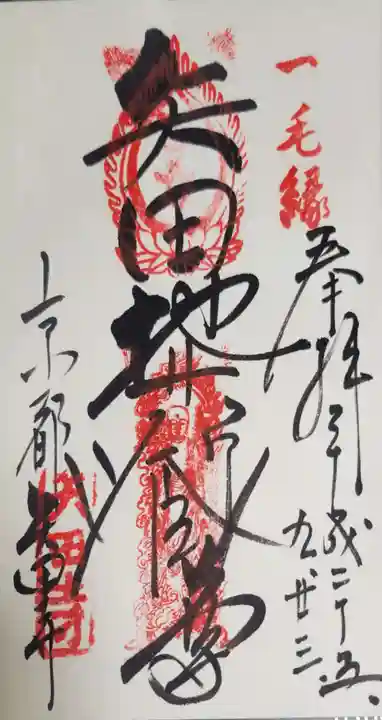 一毛縁
奉拝 平成二十五、
九 廿三
矢田地蔵尊
京都
矢田寺